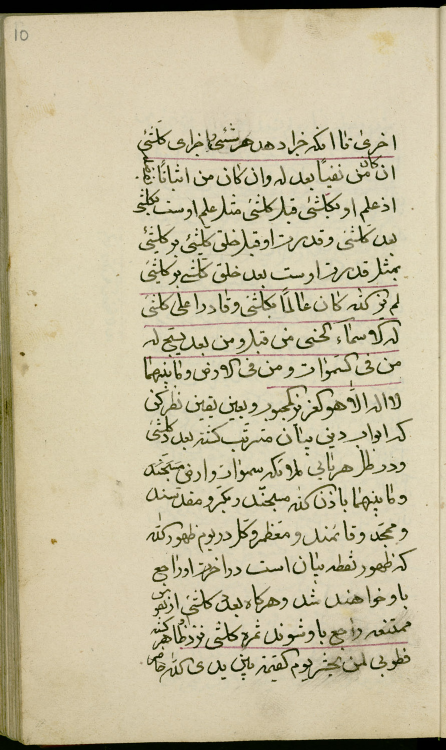 10
اخری تا آنکه جزا دهد هر شیئی را جزای کلشئ
ان کان من نفیا بعدله وان کان من اثباتا
اذ علم او بکلشئ قبل کلشئ مثل علم اوست بکلشئ
بعد کلشئ و قدرت او قبل خلق کلشئ بر کلشئ
بمثل قدرت اوست بعد خلق کلشئ بر کلشئ
لم یزل الله کان عالما بکلشئ وقادرا علی کلشئ
له الاسماء الحسنی من قبل ومن بعد یسبح له
من فی السموات ومن فی الارض وما بینهما
لا اله الا هو العزیز المحبوب و بعین یقین نظر کن
که ابواب دین بیان مترتب گشته بعدد کلشئ
ودر ظل هر بابی ملائکه سموات وارض
وما بینهما باذن الله مسبحند ومکبر ومقدسند
و ممجد و قائمند و معظم وکل در یوم ظهور الله
که ظهور نقطه بیان است در اخرت او راجع
باو خواهند شد وهرگاه بعدد کلشئ از نفوس
ممتنعه راجع باو شوند ثمره کلشئ نزد ظاهر گشته
فطوبی لمن یحشر یوم القیمة بین یدی الله